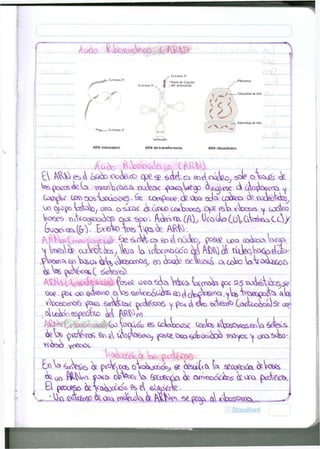 Ácido Ribonucleico (ARN)
Extremo 3'
Extremo 5'
Extremo 5'
Ribosoma
Subunidad de 60s
Subunidad de 40s
Extremo 3'
Anticodón
ARN mensajero ARN de transferencia ARN ribosómico
Ácido Ribonucleico (ARN)
El ARN es el ácido nucleico que se sintetiza en el núcleo, sale a través de
los poros de la membrana nuclear para luego dirigirse al citoplasma y
cumplir con sus funciones. Se compone de una sola cadena de nucleótidos,
un grupo fosfato, una azúcar de cinco carbonos que es la ribosa y cuatro
bases nitrogenadas que son: Adenina (A), Uracilo (U), Citosina (C) y
Guanina (G). Existen tres tipos de ARN:
ARNm (mensajero): Se sintetiza en el núcleo, posee una cadena larga
y lineal de nucleótidos, lleva la información del ADN del núcleo hacia el cito-
plasma en busca de los ribosomas, en donde se llevará a cabo la traducción
de las proteínas (síntesis)
ARNt (transferencia) Posee una sola hebra formada por 75 nucleótidos, se
une por un extremo a los aminoácidos en el citoplasma, y los transporta a los
ribosomas para sintetizar proteínas y por el otro extremo (anticodón) se une
al codón específico del ARNm.
su función es colaborar con los ribosomas en la síntesis
de las proteínas en el citoplasma, posee una subunidad mayor y una subu-
nidad menor.
Traducción de las proteínas
En la síntesis de proteínas o traducción, se descifra la secuencia de bases
de un ARNm para obtener la secuencia de aminoácidos de una proteína.
El proceso de traducción es el siguiente:
- Un extremo de una molécula de ARNm se pega al ribosoma
Standford